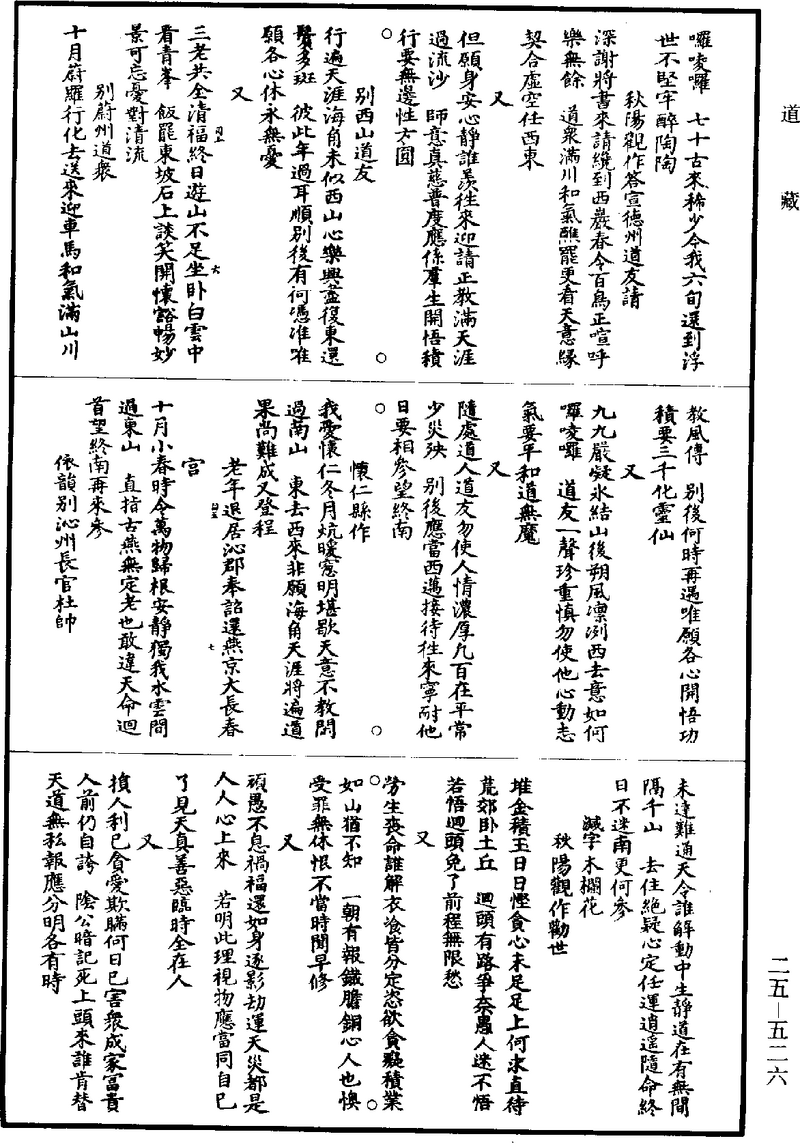 道藏
囉唆囉　七十古來稀少今我六旬還到浮
世不堅牢醉陶陶
秋陽觀作答宣德州道友請
深謝將書來請纔到西巖春令百鳥正喧呼
樂無餘　道衆滿川和氣醮罷更看天意緣
契合虛空任西東
又
但願身安心靜誰羨往來迎請正教滿天涯
過流沙　師意真慈普度應係羣生開悟積
行要無邊性方圓
別西山道友
行遍天涯海角未似西山心樂興盡復東還
鬢多斑　彼此年過耳順別後有何憑准唯
願各心休永無憂
又
三老共全清福終日遊山不足坐卧白雲中
看青峯　飯罷東坡石上談笑開懷豁暢妙
景可忘憂對清流
別蔚州道衆
十月蔚羅行化去送來迎車馬和氣滿山川
教風傳　別後何時再遇唯願各心開悟功
積要三千化靈仙
又
九九嚴凝氷結山後朔風凛冽西去意如何
囉唆囉　道友一聲珍重慎勿使他心動志
氣要平和道無魔
又
隨處道人道友勿使人情濃厚凡百在平常
少災殃　別後應當西邁接待往來寧耐他
日要相參望終南
懷仁縣作
我愛懷仁冬月炕暖窓明堪歇天意不教閑
過南山　東去西來非願海角天涯將遍道
果尚難成又登程
老年退居沁郡奉詔還燕京大長春
宮
十月小春時令萬物歸根安靜獨我水雲間
過東山　直指古燕無定老也敢違天命迴
首望終南再來參
依韻別沁州長官杜帥
未達難通天令誰解動中生靜道在有無間
隔千山　去住絕疑心定任運逍遥隨命終
日不迷南更何參
減字木欄花
秋陽觀作勸世
堆金積玉日日慳貪心未足足上何求直待
荒郊卧土丘　迴頭有路爭奈愚人迷不悟
若悟迴頭免了前程無限愁
又
勞生喪命誰解衣飡皆分定恣欲貪癡積業
如山猶不知　一朝有報鐵膽銅心人也懊
受罪無休恨不當時聞早修
又
頑愚不息禍福還如身逐影劫運天災都是
人人心上來　若明此理視物應當同自己
了見天真善惡臨時全在人
又
損人利己貪愛欺瞞何日已害衆成家富貴
人前仍自誇　陰公暗記死上頭來誰肯替
天道無私報應分明各有時
二五—五二六